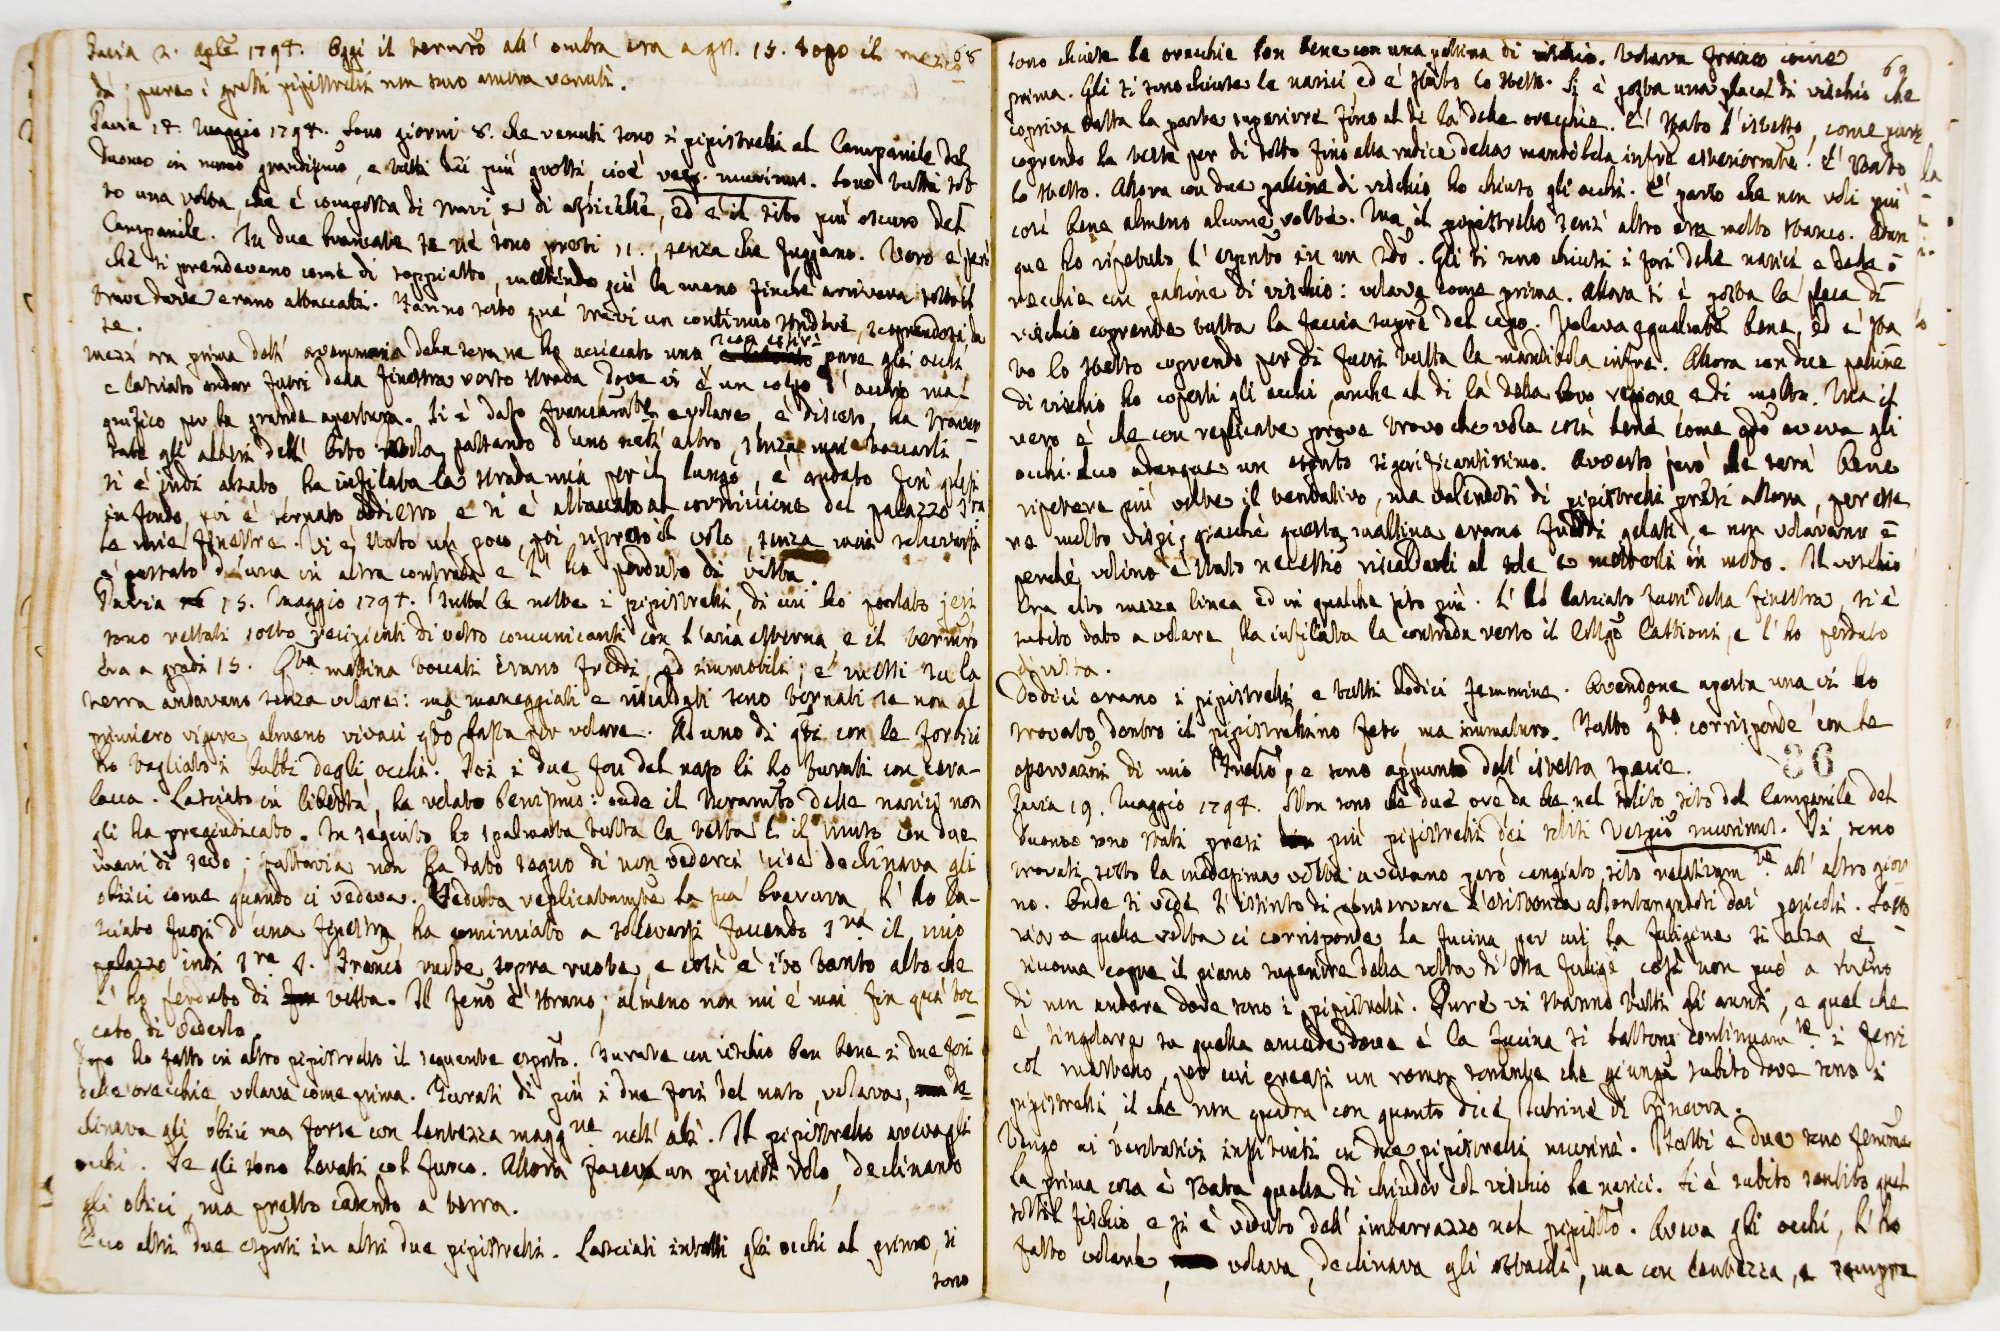 68
Pavia 2. Aple 1794. Oggi il termtro all' ombra era a gr. 15. dopo il mezzo
dì; pure i grossi pipistrelli non sono ancora venuti.
Pavia 14. Maggio 1794. Sono giorni 8. che venuti sono i pipistrelli al Campanile del
Duomo in numo grandissimo, e tutti dei più grossi cioè vesp. murinus. Sono tutti sot-
to una volta, che è composta di travi e di assicelle, ed è il sito più oscuro del
Campanile. In due brancate se ne sono presi 11., senza che fuggano. Vero è però
che si prendevano come di soppiatto, mettendo giù la mano finchè arrivava sotto il
trave dove erano attaccati. Fanno sotto que' travi un continuo stridore,
te.
mezz' ora prima dell' avemmaria della sera ne ho acciecato una pure gli occhi
e lasciato andar fuori della finestra verso strada dove vi è un colpo d' occhio ma-
gnifico per la grande apertura. Si è dato francamte a volare, è disceso, ha traver-
sate gli alberi dell' Orto passando d'uno nell' altro, senza mai toccarli
si è indi alzato, ha infilata la strada mia per il lungo, è andato fin quasi
in fondo, poi è tornato addietro e si è attaccato al cornicione del palazzo sra
le mie finestre. Vi è stato un poco, poi ripreso il volo, senza mai
è passato d' una in altra contrada e l' ho perduto di vista.
Pavia 15. Maggio 1794. Tutta la notte i pipistrelli, di cui ho parlato jeri
sono restati sotto recipienti di vetro comunicanti con l'aria esterna, e il termtro
era a gradi 15. Qta mattina toccati erano freddi, ed immobili; e messi su la
terra andavano senza volare: ma maneggiati e riscaldati sono tornati se non al
primiero vigore, almeno vivaci qto basta per volare. Ad uno di qti con le forbici
ho tagliato i bulbi degli occhi. Poi i due fori del naso li ho turati con cera-
lacca. Lasciato in libertà, ha volato benissimo: onde il turamto delle narici non
gli ha pregiudicato. In seguito ho spalmata tutta la testa e il muso con due
mani di sevo; tuttavia non ha dato segno di non vederci, cioè declinava gli
obici come quando ci vedeva. Veduta replicatamte la sua bravura, l' ho la-
sciato fuori d' una finestra, ha cominciato a sollevarsi facendo sra il mio
palazzo indi sra q. Franco ruote sopra ruote, e così è ito tanto alto che
l' ho perduto di vista. Il seno è strano; almeno non mi è mai fin quì toc-
cato di vederlo.
Dopo ho fatto in altro pipistrello il seguente esprto. Turate con vischio ben bene i due fori
delle orecchie, volava come prima. Turati di più i due fori del naso, volava, de-
clinava gli obici ma forse con lentezza maggre nell' ali. Il pipistrello aveva gli
occhi. Se gli sono levati col fuoco. Allora faceva un piccol volo, declinando
gli obici, ma presto cadendo a terra.
Ecco altri due esprti in altri due pipistrelli. Lasciati intatti gli occhi al primo, si
sono
69
sono chiuse le orecchie ben bene con una pallina di vischio. Volava franco come
prima. Gli si sono chiuse le narici, ed è stato lo stesso. Si è posta una placa di vischio che
copriva tutta la parte superiore fino al di là delle orecchie. E' stato l'istesso, come pure
coprendo la testa per di sotto fino alla radice della mandibola infre esteriormte. E' stato
lo stesso. Allora con due palline di vischio ho chiuso gli occhi. E' parso che non voli più
così bene almeno alcune volte. Ma il pipistrello senz' altro era molto stanco. Adun-
que ho ripetuto l' esprto in un 2do. Gli si sono chiusi i fori delle narici e delle o-
recchie con palline di vischio: volava come prima. Allora si è posta la placa di
vischio coprente tutta la faccia supre del capo. Volava egualmte bene, ed è sta-
to lo stesso coprendo per di fuori tutta la mandibola infre. Allora con due palline
di vischio ho coperti gli occhi, anche al di là della loro regione, e di molto. Ma il
vero è che con replicate prove trovo che vola così bene, come qdo aveva gli
occhi. Ecco adunque un esprto significantissimo. Avverto però che sarà bene
ripetere più volte il tentativo, ma valendosi di pipistrelli presi allora, per esse-
re molto vispi, giacchè questa mattina erano freddi gelati, e non volavano e
perchè volino è stato necessrio riscaldarli al sole e metterli in moto. Il vischio
era alto mezza linea ed in qualche sito più. L' ho lasciato fuori della finestra, si è
subito dato a volare, ha infilata la contrada verso il Collego Castiglioni, e l' ho perduto
di vista.
Dodici erano i pipistrelli e tutti dodici femmine. Avendone aperta una vi ho
trovato dentro il pipistrellino feto, ma immaturo. Tutto qto corrisponde con le
opervazni di mio fratello, e sono appunto dell' istessa specie.
86
Pavia 19. Maggio 1794. Non sono che due ore da che nel solito sito del Campanile del
Duomo sono stati presi più pipistrelli dei soliti Vespio murinus. Si sono
trovati sotto la medesima volta avevano però cangiato sito relativamte all' altro gior-
no. Onde si vede l' istinto di conservare l' esistenza allontanandosi dai pericoli. Sotto
a quella volta ci corrisponde la fucina per cui la fuligine si alza, e
siccome copre il piano superiore della volta di sta fulige, così non può a meno
di non andare dove sono i pipistrelli. Pure vi stanno tutti gli anni, e quel che
è singolare su quella ancude dove è la fucina si battono continuamte i ferri
col martello, per cui creasi un romor sonante che giunge subito dove sono i
pipistrelli il che non quadra con quanto dice Jurine di Ginevra.
Vengo ai tentativi instituiti in due pipistrelli murini. Tutti e due sono femme.
La prima cosa è stata quella di chiuder col vischio le narici. Si è subito sentito quel
sottil fischio e si è veduto dell' imbarrazzo nel pipistlo. Aveva gli occhi, l' ho
fatto volare, volava, declinava gli ostacoli, ma con lentezza, e sempre